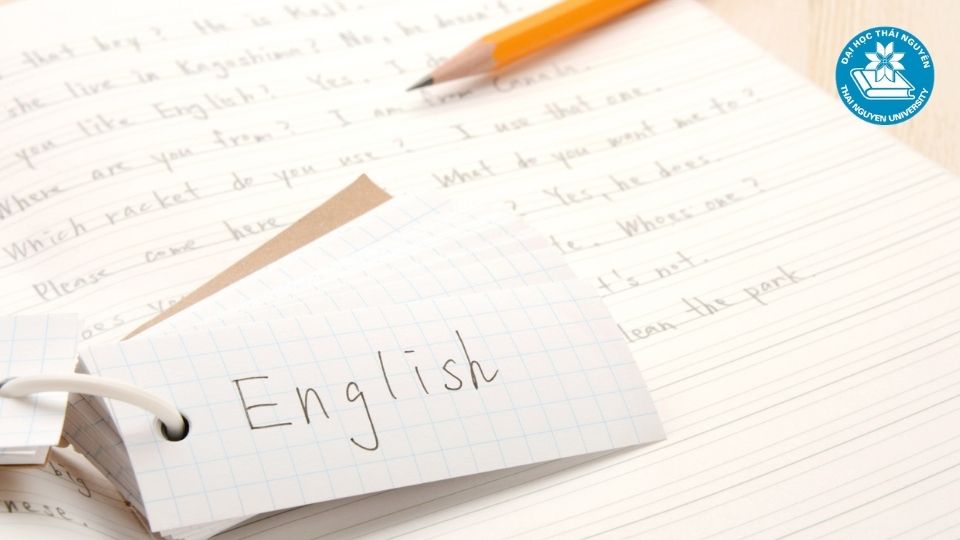 that boy? He is Koji.
she live in Kagoshima? No, he doesn't.
you like English? Yes, I do
Where are you from? I am from
Which racket do you use? I use that one.
Please come here What do you want me to?
? Yes, he does.
Whoes one?
t's not.
lean the park.
English
big
nese.
ĐẠI HỌC THÁI NGUYÊN
THAI NGUYEN UNIVERSITY